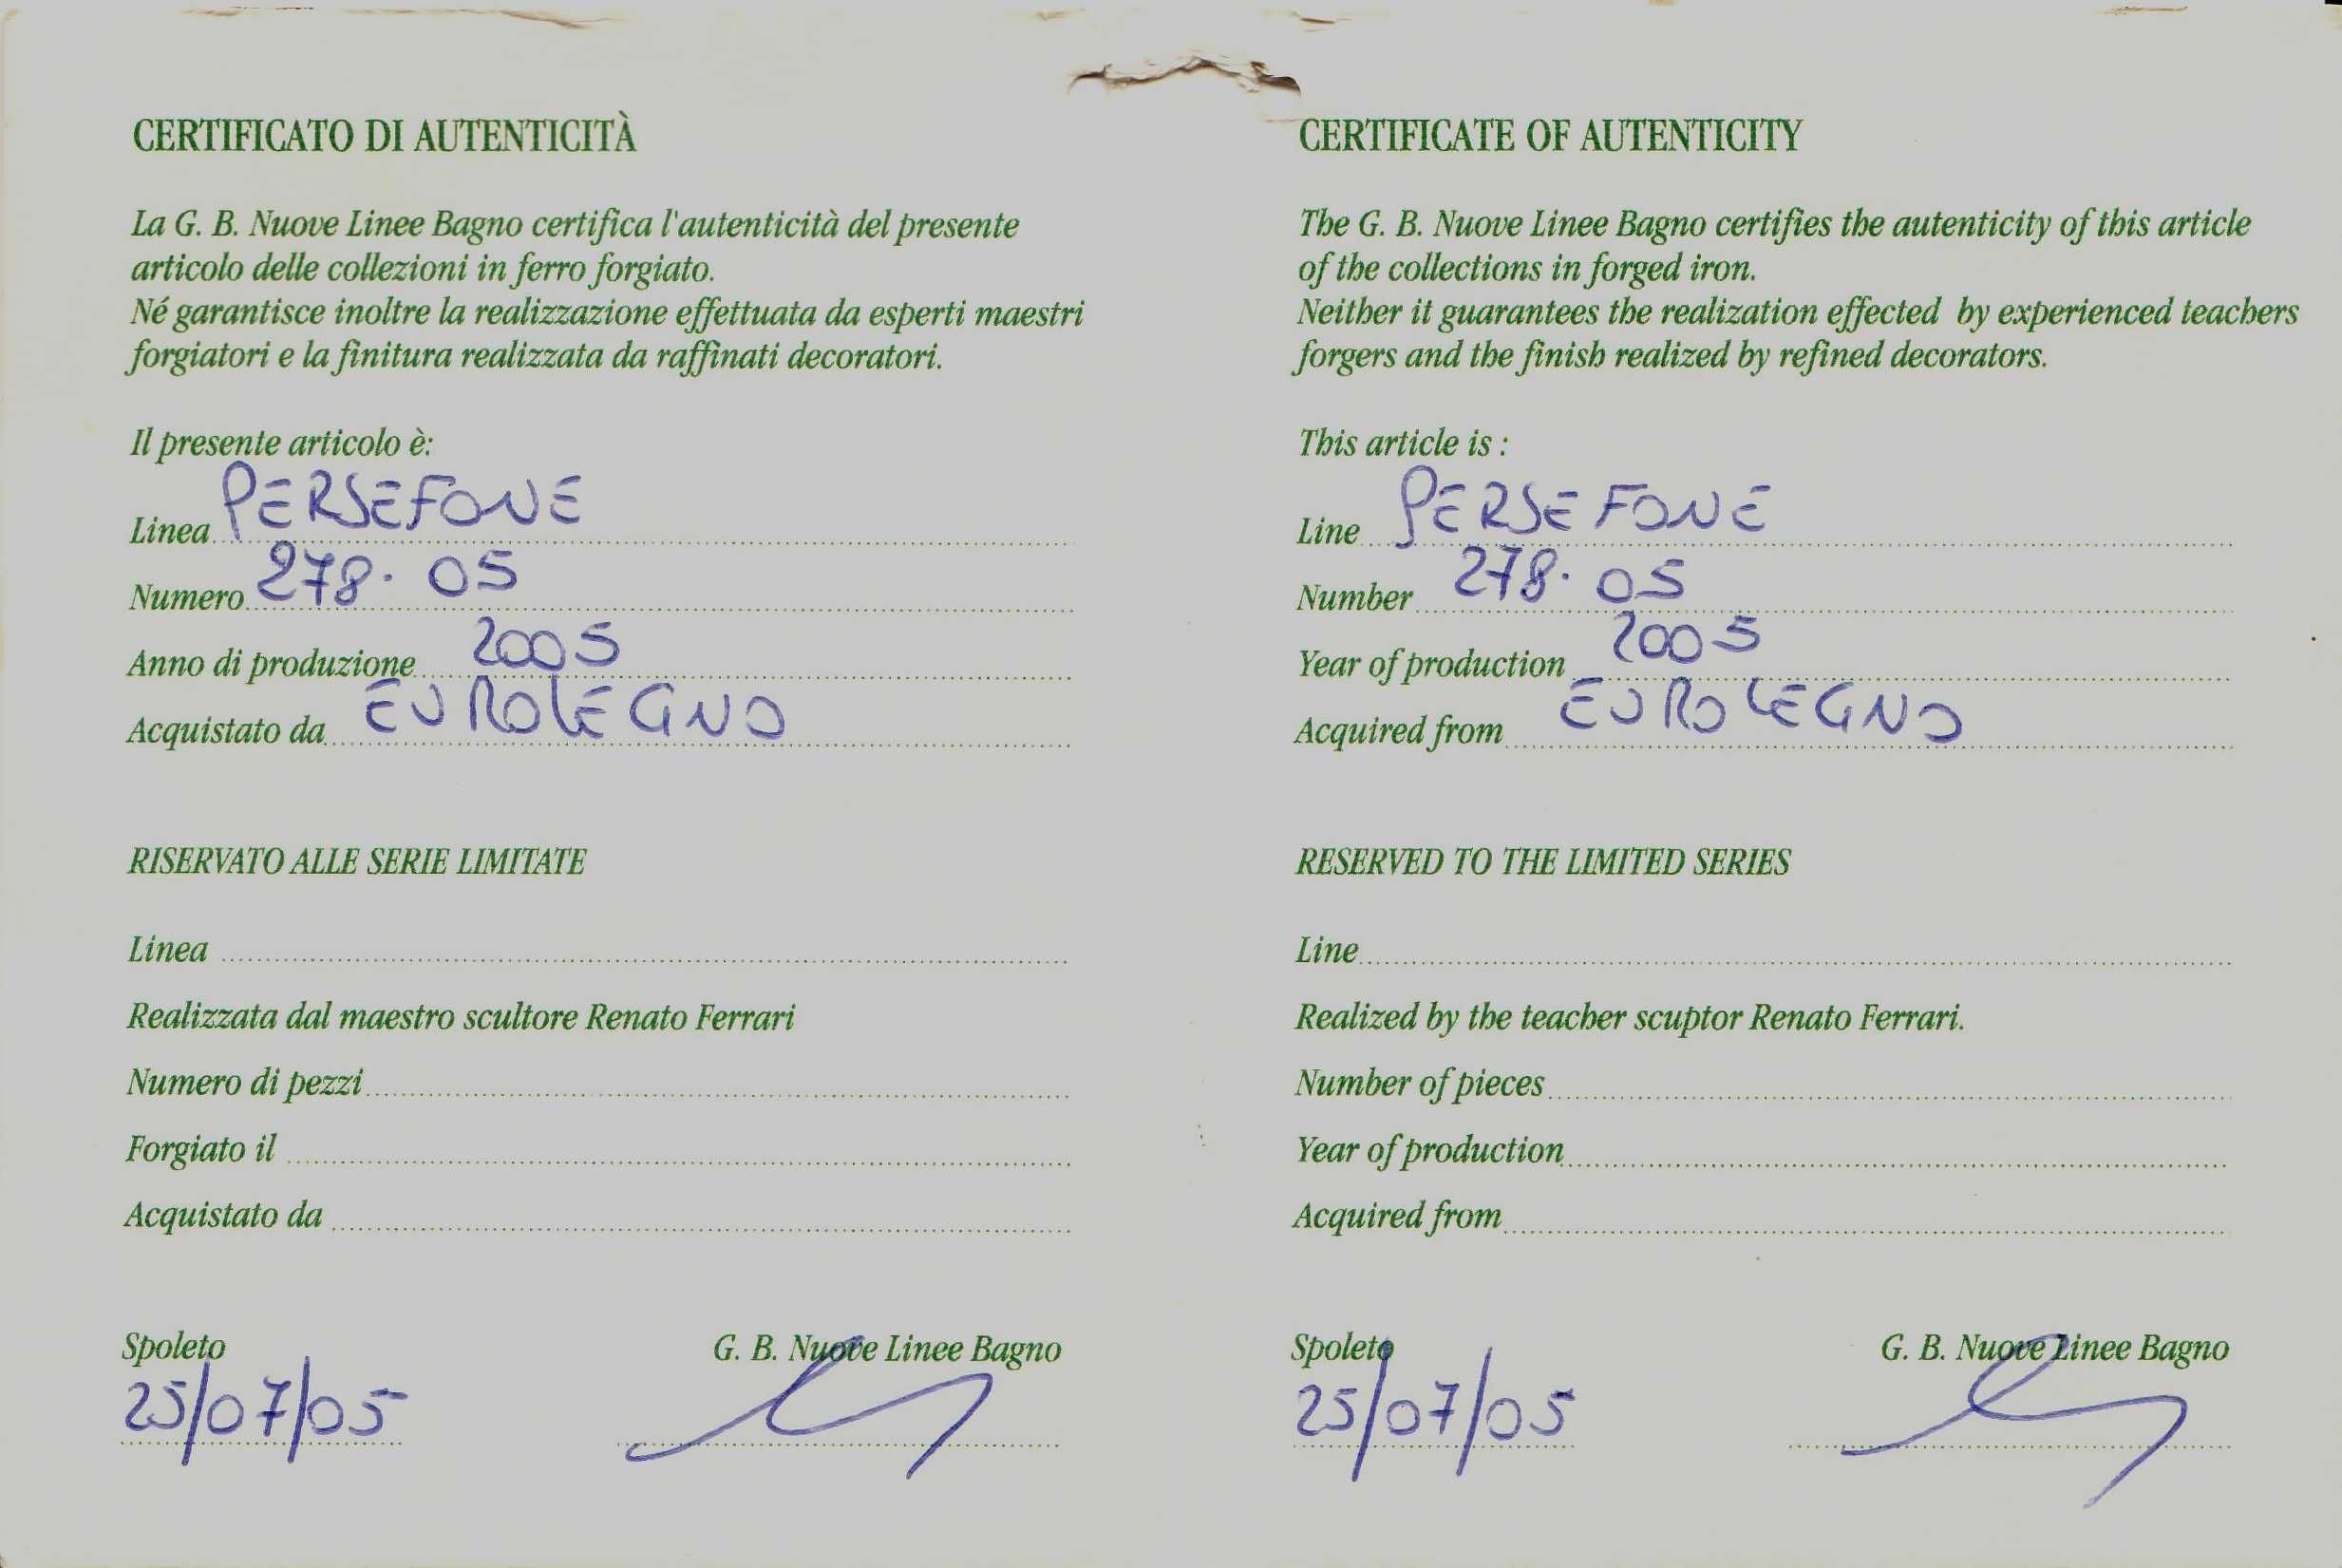 CERTIFICATO DI AUTENTICITÀ
La G. B. Nuove Linee Bagno certifica l'autenticità del presente
articolo delle collezioni in ferro forgiato.
Né garantisce inoltre la realizzazione effettuata da esperti maestri
forgiatori e la finitura realizzata da raffinati decoratori.
Il presente articolo è:
Linea PERSEFONE
Numero 278. 05
Anno di produzione 2005
Acquistato da EUROLEGNO
RISERVATO ALLE SERIE LIMITATE
Linea
Realizzata dal maestro scultore Renato Ferrari
Numero di pezzi
Forgiato il
Acquistato da
Spoleto G. B. Nuove Linee Bagno
25/07/05
CERTIFICATE OF AUTENTICITY
The G. B. Nuove Linee Bagno certifies the autenticity of this article
of the collections in forged iron.
Neither it guarantees the realization effected by experienced teachers
forgers and the finish realized by refined decorators.
This article is :
Line PERSEFONE
Number 278. 05
Year of production 2005
Acquired from EUROLEGNO
RESERVED TO THE LIMITED SERIES
Line
Realized by the teacher scuptor Renato Ferrari.
Number of pieces
Year of production
Acquired from
Spoleto G. B. Nuove Linee Bagno
25/07/05